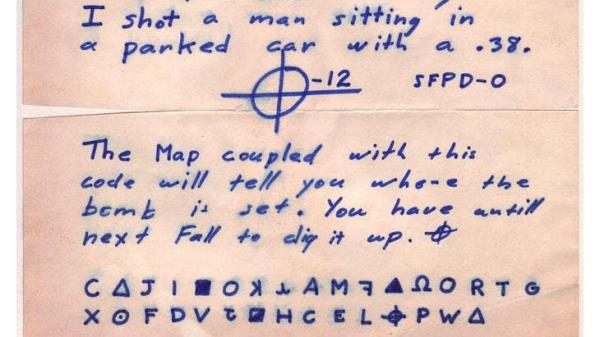 I shot a man sitting in
a parked car with a .38.
⌖-12 SFPD-0
The Map coupled with this
code will tell you whone the
bomb is set. You have untill
next Fall to dig it up. ⌖
C Δ J I ■ O ꓘ ⅄ A M ꟻ ▲ Ω O R T G
X ⊙ F D V ⵒ ◪ H C E L ⌖ P W Δ